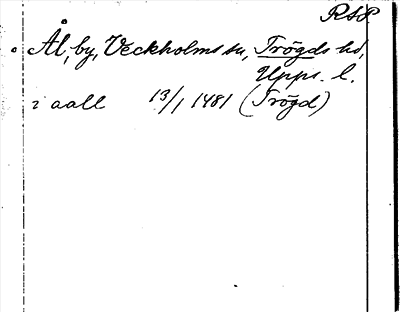 RSP
Ål, by, Veckholms sn, Trögds hd,
Upps. l.
i aall 13/1 1481 (Trögd)